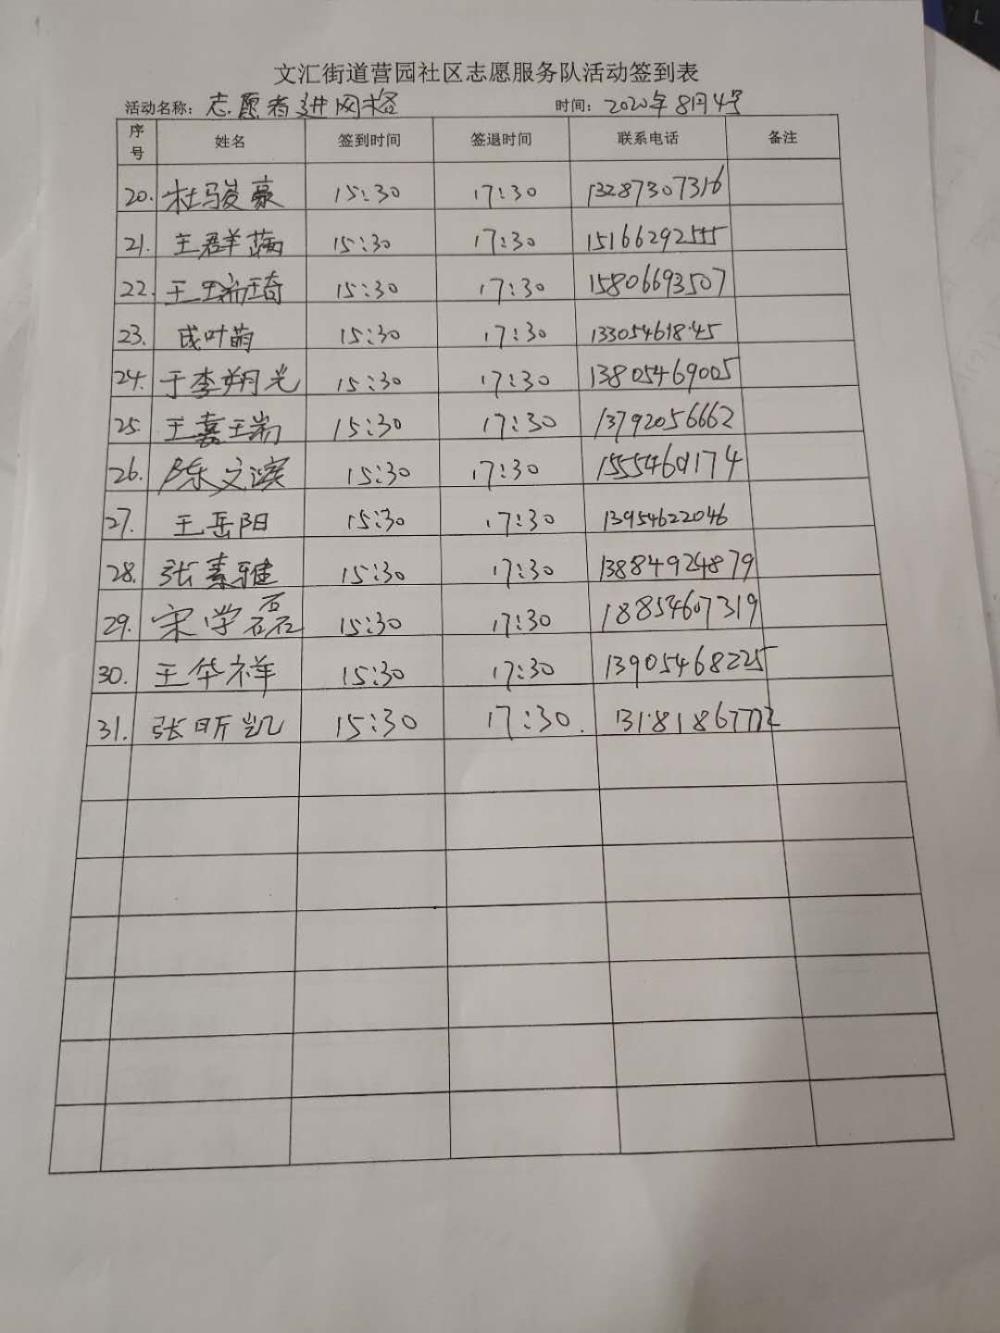 文汇街道营园社区志愿服务队活动签到表
活动名称：志愿者进网格 时间：2020年8月4号
序号 姓名 签到时间 签退时间 联系电话 备注
20. 杜骏豪 15:30 17:30 13287307316
21. 王群 15:30 17:30 15166292555
22. 王瑞琦 15:30 17:30 15806693507
23. 成叶萌 15:30 17:30 13305461845
24. 于李翔光 15:30 17:30 13805469005
25. 王嘉瑞 15:30 17:30 13792056662
26. 陈文滨 15:30 17:30 15554601174
27. 王岳阳 15:30 17:30 13954622046
28. 张素雅 15:30 17:30 13884924879
29. 宋学磊 15:30 17:30 18854607319
30. 王华祥 15:30 17:30 13905468225
31. 张昕凯 15:30 17:30.